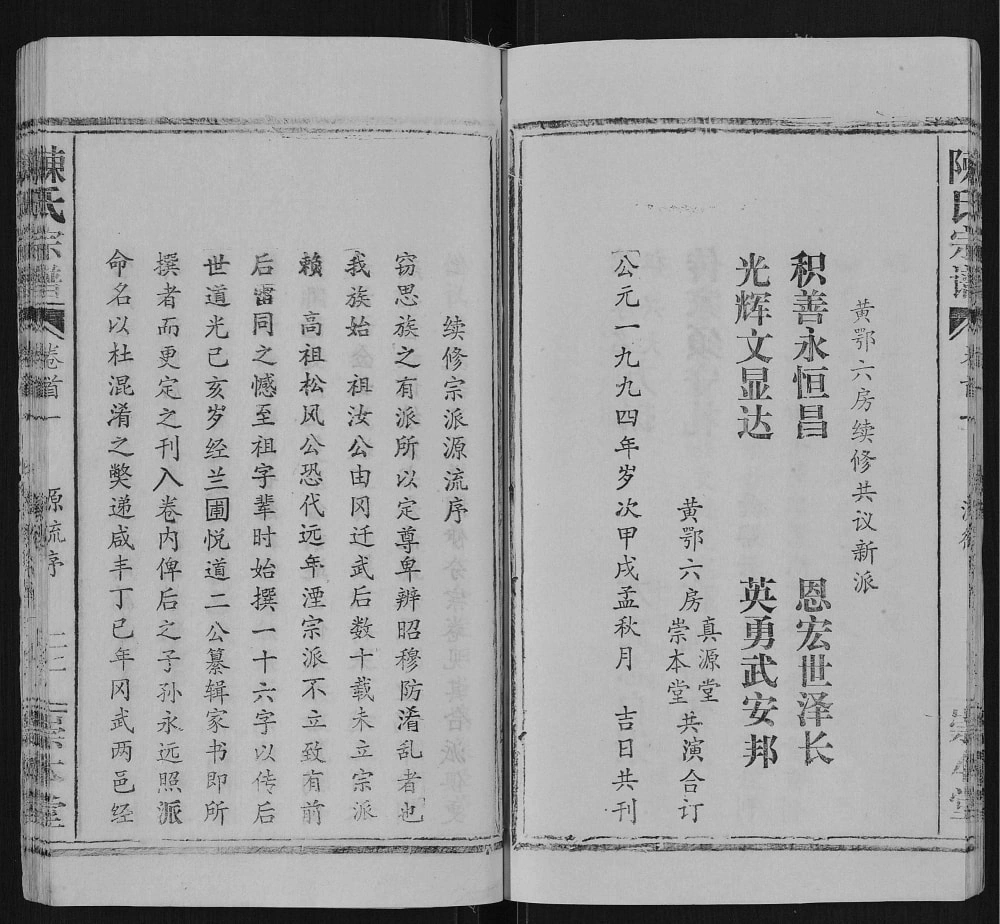 陈氏宗谱
黄鄂六房续修共议新派
积善永恒昌　恩宏世泽长
光辉文显达　英勇武安邦
黄鄂六房真源堂崇本堂共演合订
公元一九九四年岁次甲戌孟秋月　吉日共刊
续修宗派源流序
窃思族之有派所以定尊卑辨昭穆防淆乱者也
我族始祖汝公由冈迁武后数十载未立宗派
赖高祖松风公恐代远年湮宗派不立致有前
后雷同之憾至祖字辈时始撰一十六字以传后
世道光己亥岁经兰圃悦道二公纂辑家书即所
撰者而更定之刊入卷内俾后之子孙永远照派
命名以杜混淆之獘递咸丰丁巳年冈武两邑经
陳氏宗譜　卷首一　源流序　二二　崇本堂